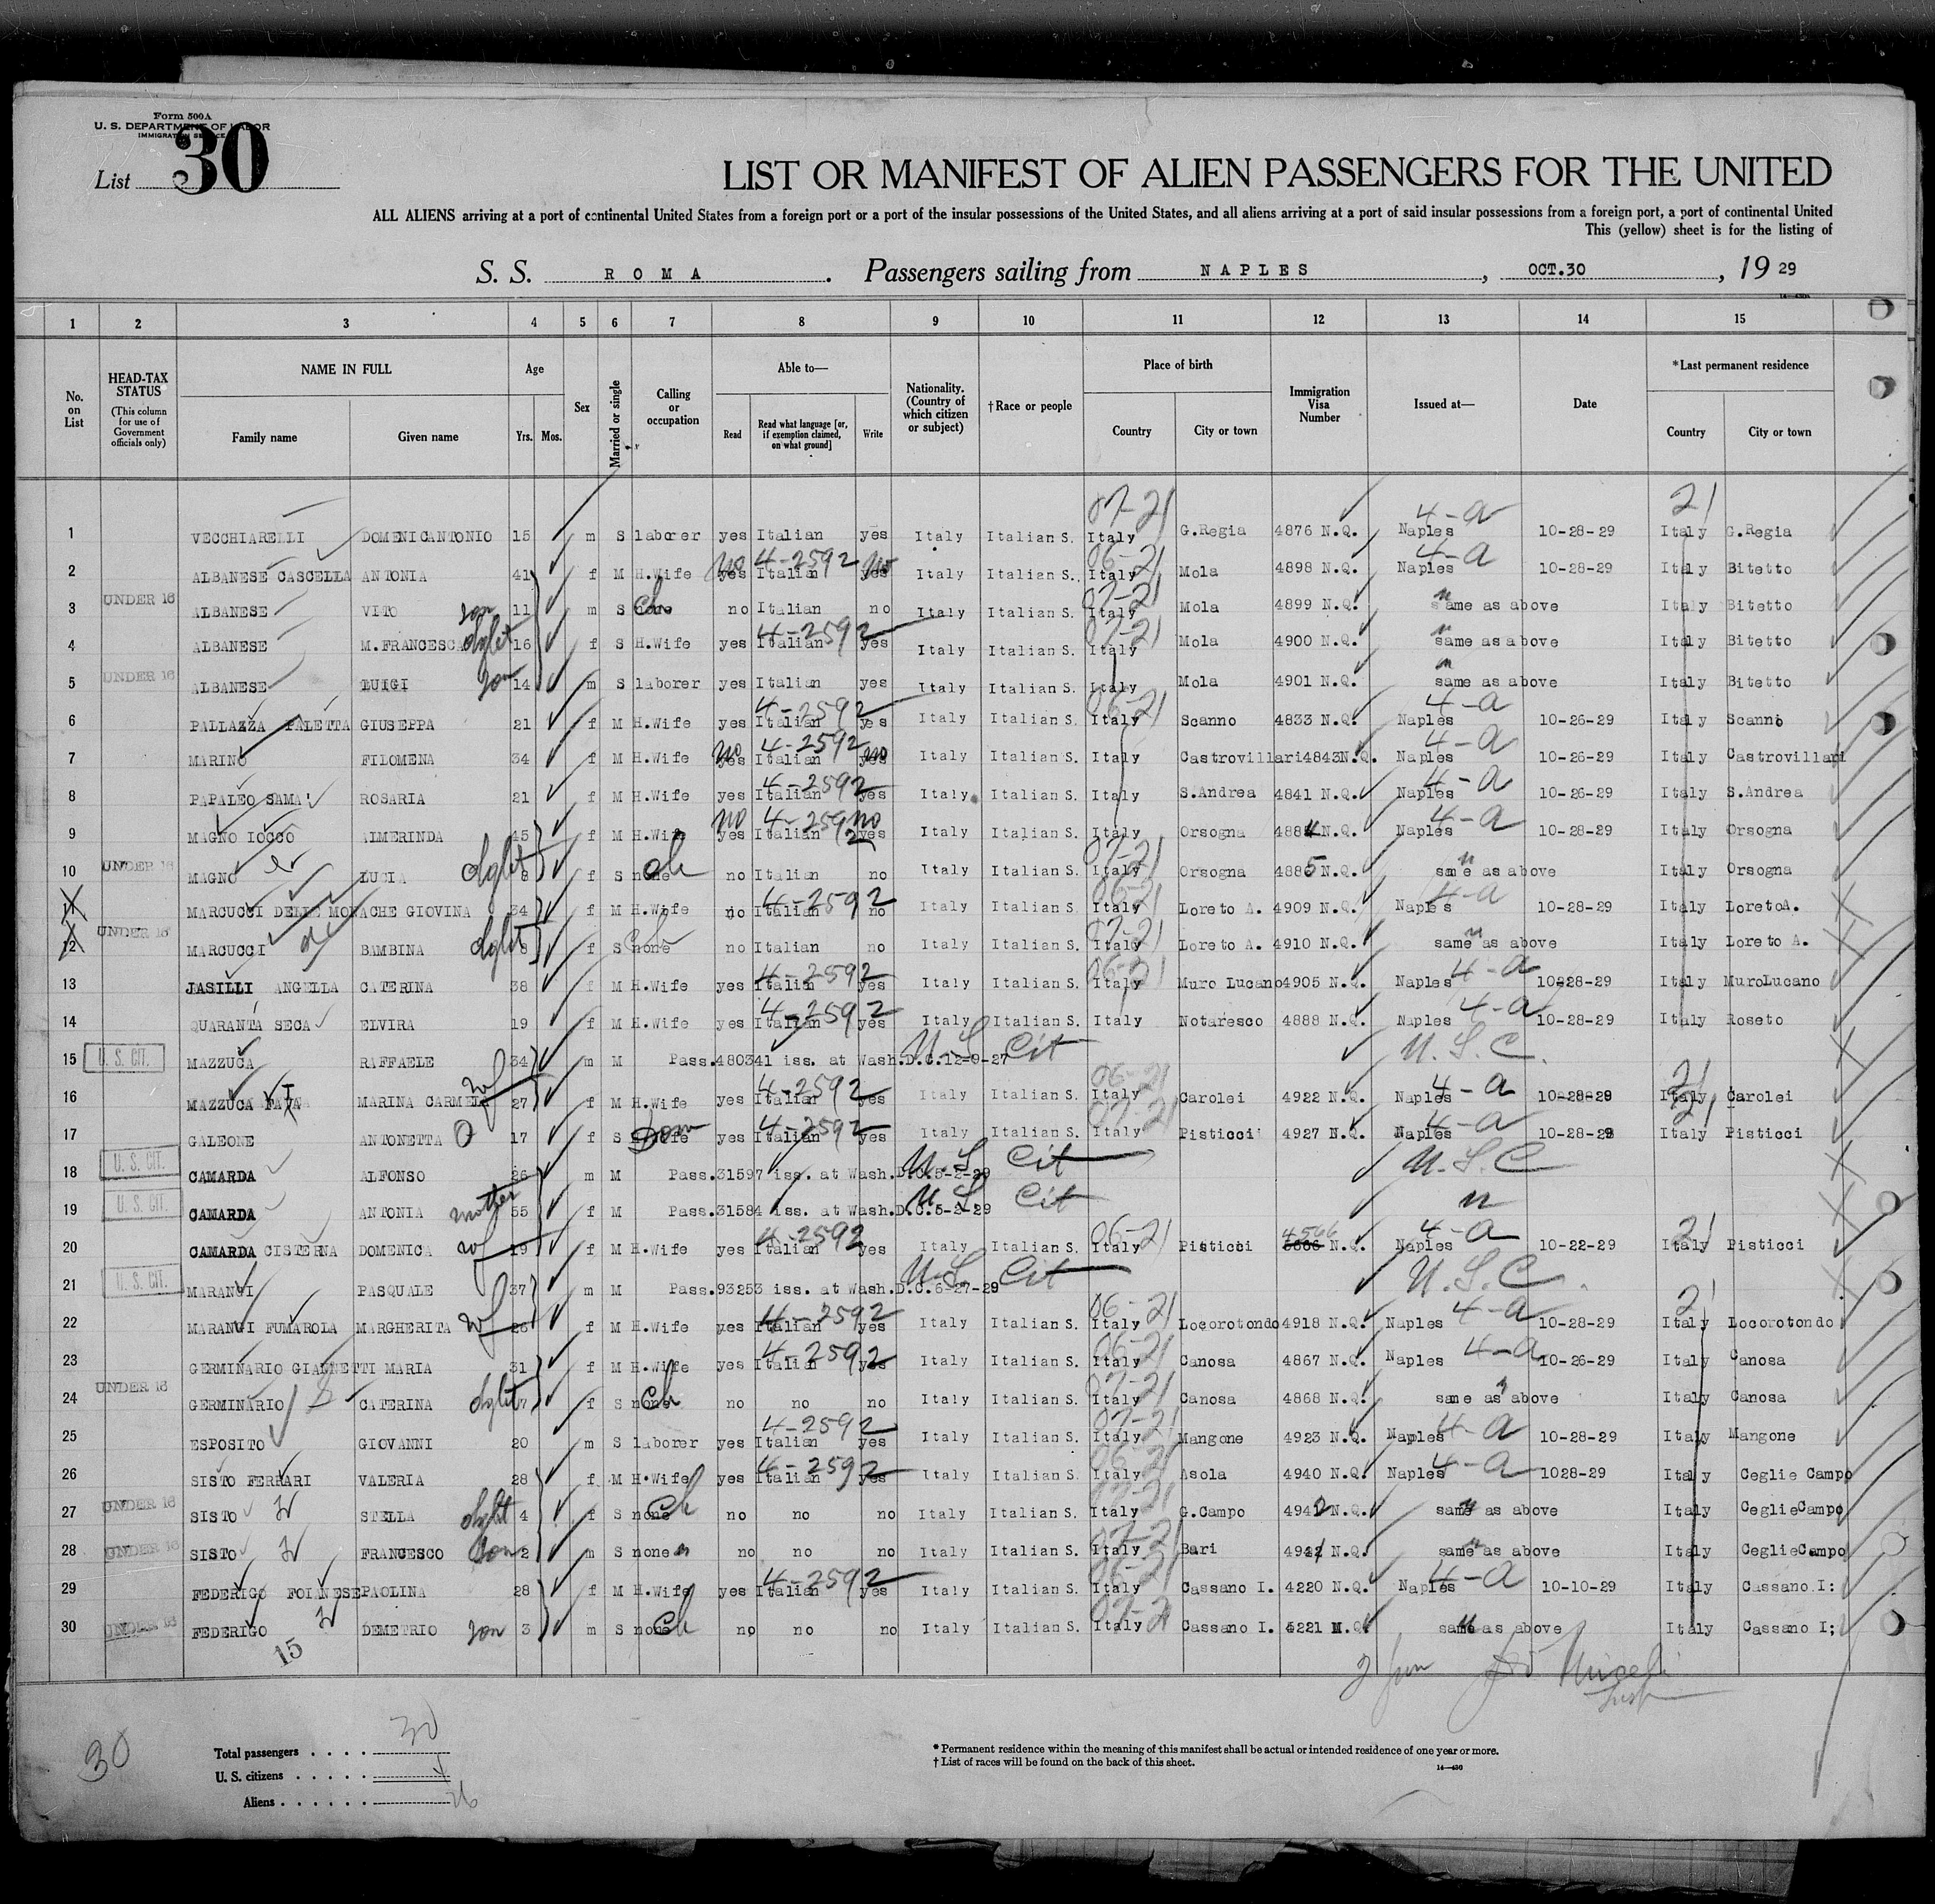 Form 500A
U. S. DEPARTMENT OF LABOR
IMMIGRATION SERVICE
List 30
LIST OR MANIFEST OF ALIEN PASSENGERS FOR THE UNITED
ALL ALIENS arriving at a port of continental United States from a foreign port or a port of the insular possessions of the United States, and all aliens arriving at a port of said insular possessions from a foreign port, a port of continental United
This (yellow) sheet is for the listing of
S. S. ROMA. Passengers sailing from NAPLES, OCT.30, 19 29
1 2 3 4 5 6 7 8 9 10 11 12 13 14 15
No. on List
HEAD-TAX STATUS (This column for use of Government officials only)
NAME IN FULL
Family name Given name
Age
Yrs. Mos.
Sex
Married or single
Calling or occupation
Able to—
Read Read what language [or, if exemption claimed, on what ground] Write
Nationality. (Country of which citizen or subject)
†Race or people
Place of birth
Country City or town
Immigration Visa Number
Issued at—
Date
*Last permanent residence
Country City or town
07-21 4-a 21
1 VECCHIARELLI DOMENICANTONIO 15 m S laborer yes Italian yes Italy Italian S. Italy G.Regia 4876 N.Q. Naples 10-28-29 Italy G.Regia
no 4-2592 no 06-21 4-a
2 ALBANESE CASCELLA ANTONIA 41 f M H.Wife yes Italian yes Italy Italian S. Italy Mola 4898 N.Q. Naples 10-28-29 Italy Bitetto
UNDER 16 07-21
3 ALBANESE VITO son 11 m S Ch no Italian no Italy Italian S. Italy Mola 4899 N.Q. same as above Italy Bitetto
4-2592 07-21
4 ALBANESE M.FRANCESCA dght 16 f S H.Wife yes Italian yes Italy Italian S. Italy Mola 4900 N.Q. same as above Italy Bitetto
UNDER 16
5 ALBANESE LUIGI son 14 m S laborer yes Italian yes Italy Italian S. Italy Mola 4901 N.Q. same as above Italy Bitetto
4-2592 06-21 4-a
6 PALLAZZA PALETTA GIUSEPPA 21 f M H.Wife yes Italian yes Italy Italian S. Italy Scanno 4833 N.Q. Naples 10-26-29 Italy Scanno
no 4-2592 no 4-a
7 MARINO FILOMENA 34 f M H.Wife yes Italian yes Italy Italian S. Italy Castrovillari 4843N.Q. Naples 10-26-29 Italy Castrovillari
4-2592 4-a
8 PAPALEO SAMA' ROSARIA 21 f M H.Wife yes Italian yes Italy Italian S. Italy S.Andrea 4841 N.Q. Naples 10-26-29 Italy S.Andrea
no 4-2592 no 4-a
9 MAGNO IOCCO ALMERINDA 45 f M H.Wife yes Italian yes Italy Italian S. Italy Orsogna 4884 N.Q. Naples 10-28-29 Italy Orsogna
UNDER 16 07-21
10 MAGNO LUCIA dght 9 f S none ch no Italian no Italy Italian S. Italy Orsogna 4885 N.Q. same as above Italy Orsogna
4-2592 06-21 4-a
11 MARCUCCI DELLE MONACHE GIOVINA 34 f M H.Wife no Italian no Italy Italian S. Italy Loreto A. 4909 N.Q. Naples 10-28-29 Italy LoretoA.
UNDER 16 07-21
12 MARCUCCI BAMBINA dght 9 f S none Ch no Italian no Italy Italian S. Italy Loreto A. 4910 N.Q. same as above Italy Loreto A.
4-2592 06-21 4-a
13 JASILLI ANGELLA CATERINA 38 f M H.Wife yes Italian yes Italy Italian S. Italy Muro Lucano 4905 N.Q. Naples 10-28-29 Italy MuroLucano
4-2592 4-a
14 QUARANTA SECA ELVIRA 19 f M H.Wife yes Italian yes Italy Italian S. Italy Notaresco 4888 N.Q. Naples 10-28-29 Italy Roseto
U. S. CIT. U.S. Cit U.S.C.
15 MAZZUCA RAFFAELE 34 m M Pass.480341 iss. at Wash.D.C.12-9-27
wf 4-2592 06-21 4-a 21
16 MAZZUCA MARINA CARMELA 27 f M H.Wife yes Italian yes Italy Italian S. Italy Carolei 4922 N.Q. Naples 10-28-29 Italy Carolei
4-2592 07-21 4-a 21
17 GALEONE ANTONETTA 17 f S Dom yes Italian yes Italy Italian S. Italy Pisticci 4927 N.Q. Naples 10-28-29 Italy Pisticci
U. S. CIT. U.S. Cit U.S.C
18 CAMARDA ALFONSO 26 m M Pass.31597 iss. at Wash.D.C.5-2-29
U. S. CIT. U.S. Cit
19 CAMARDA ANTONIA mother 55 f M Pass.31584 iss. at Wash.D.C.5-2-29
4-2592 06-21 4566 4-a 21
20 CAMARDA CISTERNA DOMENICA wf 19 f M H.Wife yes Italian yes Italy Italian S. Italy Pisticci N.Q. Naples 10-22-29 Italy Pisticci
U. S. CIT. U.S. Cit U.S.C.
21 MARANGI PASQUALE 37 m M Pass.93253 iss. at Wash.D.C.6-27-29
4-2592 06-21 4-a 21
22 MARANGI FUMAROLA MARGHERITA wf 26 f M H.Wife yes Italian yes Italy Italian S. Italy Locorotondo 4918 N.Q. Naples 10-28-29 Italy Locorotondo
4-2592 06-21 4-a
23 GERMINARIO GIANNETTI MARIA 31 f M H.Wife yes Italian yes Italy Italian S. Italy Canosa 4867 N.Q. Naples 10-26-29 Italy Canosa
UNDER 16 07-21
24 GERMINARIO CATERINA dght 7 f S none Ch no no no Italy Italian S. Italy Canosa 4868 N.Q. same as above Italy Canosa
4-2592 07-21 4-a
25 ESPOSITO GIOVANNI 20 m S laborer yes Italian yes Italy Italian S. Italy Mangone 4923 N.Q. Naples 10-28-29 Italy Mangone
4-2592 06-21 4-a
26 SISTO FERRARI VALERIA 28 f M H.Wife yes Italian yes Italy Italian S. Italy Asola 4940 N.Q. Naples 1028-29 Italy Ceglie Campo
UNDER 16 07-21
27 SISTO STELLA dght 4 f S none Ch no no no Italy Italian S. Italy G.Campo 494 N.Q. same as above Italy CeglieCampo
UNDER 16 07-21
28 SISTO FRANCESCO son 2 m S none no no no Italy Italian S. Italy Bari 494 N.Q. same as above Italy CeglieCampo
4-2592 06-21 4-a
29 FEDERIGO FOIANESE PAOLINA 28 f M H.Wife yes Italian yes Italy Italian S. Italy Cassano I. 4220 N.Q. Naples 10-10-29 Italy Cassano I:
UNDER 16 07-21
30 FEDERIGO DEMETRIO son 3 m S none Ch no no no Italy Italian S. Italy Cassano I. 4221 N.Q. same as above Italy Cassano I;
15
30
Total passengers . . . . 30
U. S. citizens . . . . .
Aliens . . . . . . 26
* Permanent residence within the meaning of this manifest shall be actual or intended residence of one year or more.
† List of races will be found on the back of this sheet.
14—430